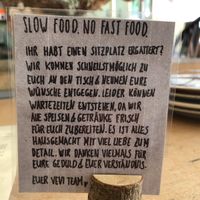 SLOW FOOD. NO FAST FOOD.
IHR HABT EINEN SITZPLATZ ERGATTERT?
WIR KOMMEN SCHNELLSTMÖGLICH ZU
EUCH AN DEN TISCH & NEHMEN EURE
WÜNSCHE ENTGEGEN. LEIDER KÖNNEN
WARTEZEITEN ENTSTEHEN, DA WIR
ALLE SPEISEN & GETRÄNKE FRISCH
FÜR EUCH ZUBEREITEN. ES IST ALLES
HAUSGEMACHT MIT VIEL LIEBE ZUM
DETAIL. WIR DANKEN VIELMALS FÜR
EURE GEDULD & EUER VERSTÄNDNIS.
EUER VEVI TEAM